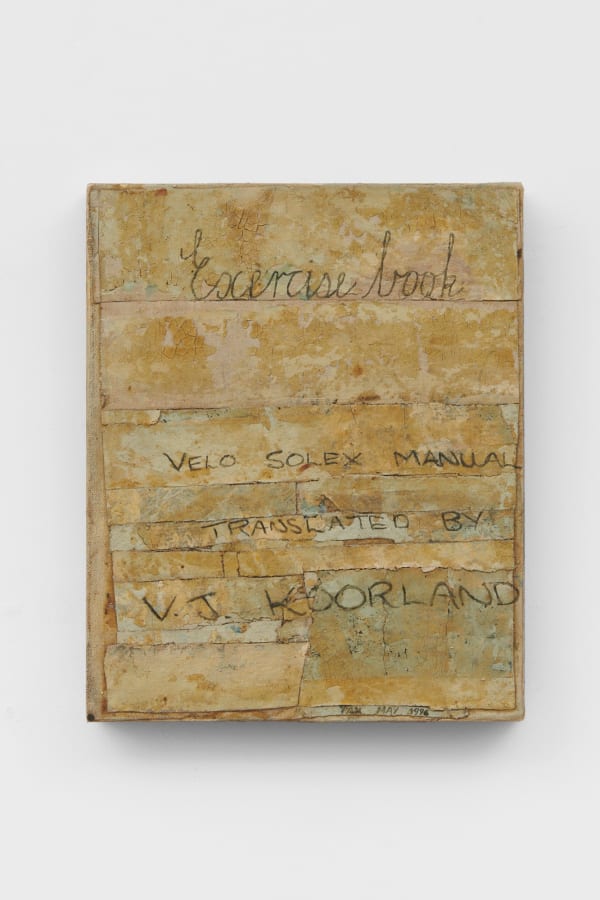 Exercise book
VELO SOLEX MANUAL
TRANSLATED BY
V.J KOORLAND
MAY 1996